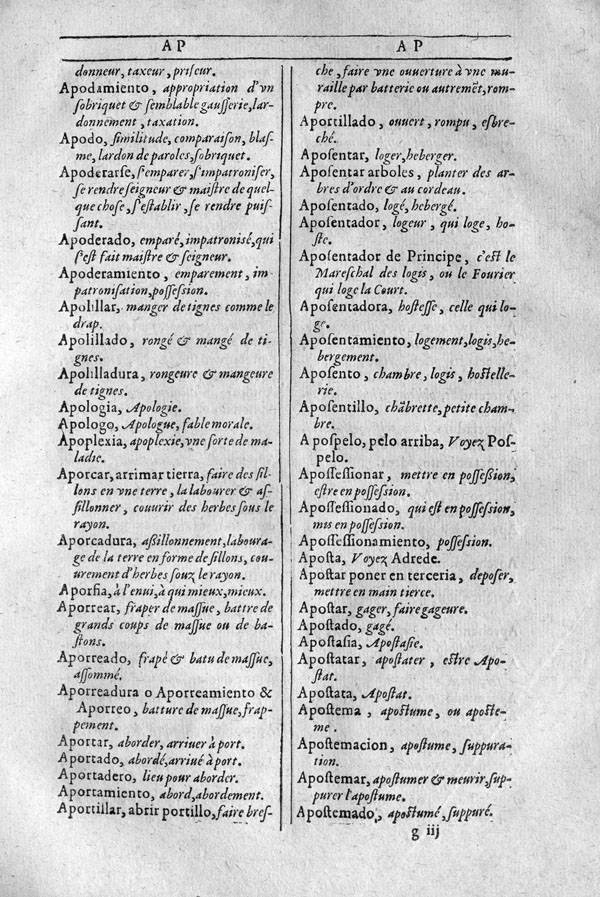 AP
donneur, taxeur, priseur.
Apodamiento, appropriation d'vn
sobriquet & semblable gausserie, lar-
donnement, taxation.
Apodo, similitude, comparaison, blas-
me, lardon de paroles, sobriquet.
Apoderarse, s'emparer, s'impatroniser,
se rendre seigneur & maistre de quel-
que chose, s'establir, se rendre puis-
sant.
Apoderado, emparé, impatronisé, qui
s'est fait maistre & seigneur.
Apoderamiento, emparement, im-
patronisation, possession.
Apolillar, manger de tignes comme le
drap.
Apolillado, rongé & mangé de ti-
gnes.
Apolilladura, rongeure & mangeure
de tignes.
Apologia, Apologie.
Apologo, Apologue, fable morale.
Apoplexia, apoplexie, vne sorte de ma-
ladie.
Aporcar, arrimar tierra, faire des sil-
lons en vne terre, la labourer & as-
sillonner, couurir des herbes sous le
rayon.
Aporcadura, assillonnement, laboura-
ge de la terre en forme de sillons, cou-
urement d'herbes souz le rayon.
Aporfia, à l'enui, à qui mieux, mieux.
Aporrear, fraper de massue, battre de
grands coups de massue ou de ba-
stons.
Aporreado, frapé & batu de massue,
assommé.
Aporreadura o Aporreamiento &
Aporreo, batture de massue, frap-
pement.
Aportar, aborder, arriuer à port.
Aportado, abordé, arriué à port.
Aportadero, lieu pour aborder.
Aportamiento, abord, abordement.
Aportillar, abrir portillo, faire bres-
AP
che, faire vne ouuerture à vne mu-
raille par batterie ou autremẽt, rom-
pre.
Aportillado, ouuert, rompu, esbre-
ché.
Aposentar, loger, heberger.
Aposentar arboles, planter des ar-
bres d'ordre & au cordeau.
Aposentado, logé, hebergé.
Aposentador, logeur, qui loge, ho-
ste.
Aposentador de Principe, c'est le
Mareschal des logis, ou le Fourier
qui loge la Court.
Aposentadora, hostesse, celle qui lo-
ge.
Aposentamiento, logement, logis, he-
bergement.
Aposento, chambre, logis, hostelle-
rie.
Aposentillo, chãbrette, petite cham-
bre.
A pospelo, pelo arriba, Voyez Pos-
pelo.
Apossessionar, mettre en possession,
estre en possession.
Apossessionado, qui est en possession,
mis en possession.
Apossessionamiento, possession.
Aposta, Voyez Adrede.
Apostar poner en terceria, deposer,
mettre en main tierce.
Apostar, gager, faire gageure.
Apostado, gagé.
Apostasia, Apostasie.
Apostatar, apostater, estre Apo-
stat.
Apostata, Apostat.
Apostema, apostume, ou aposte-
me.
Apostemacion, apostume, suppura-
tion.
Apostemar, apostumer & meurir, sup-
purer l'apostume.
Apostemado, apostumé, suppuré.
g iij